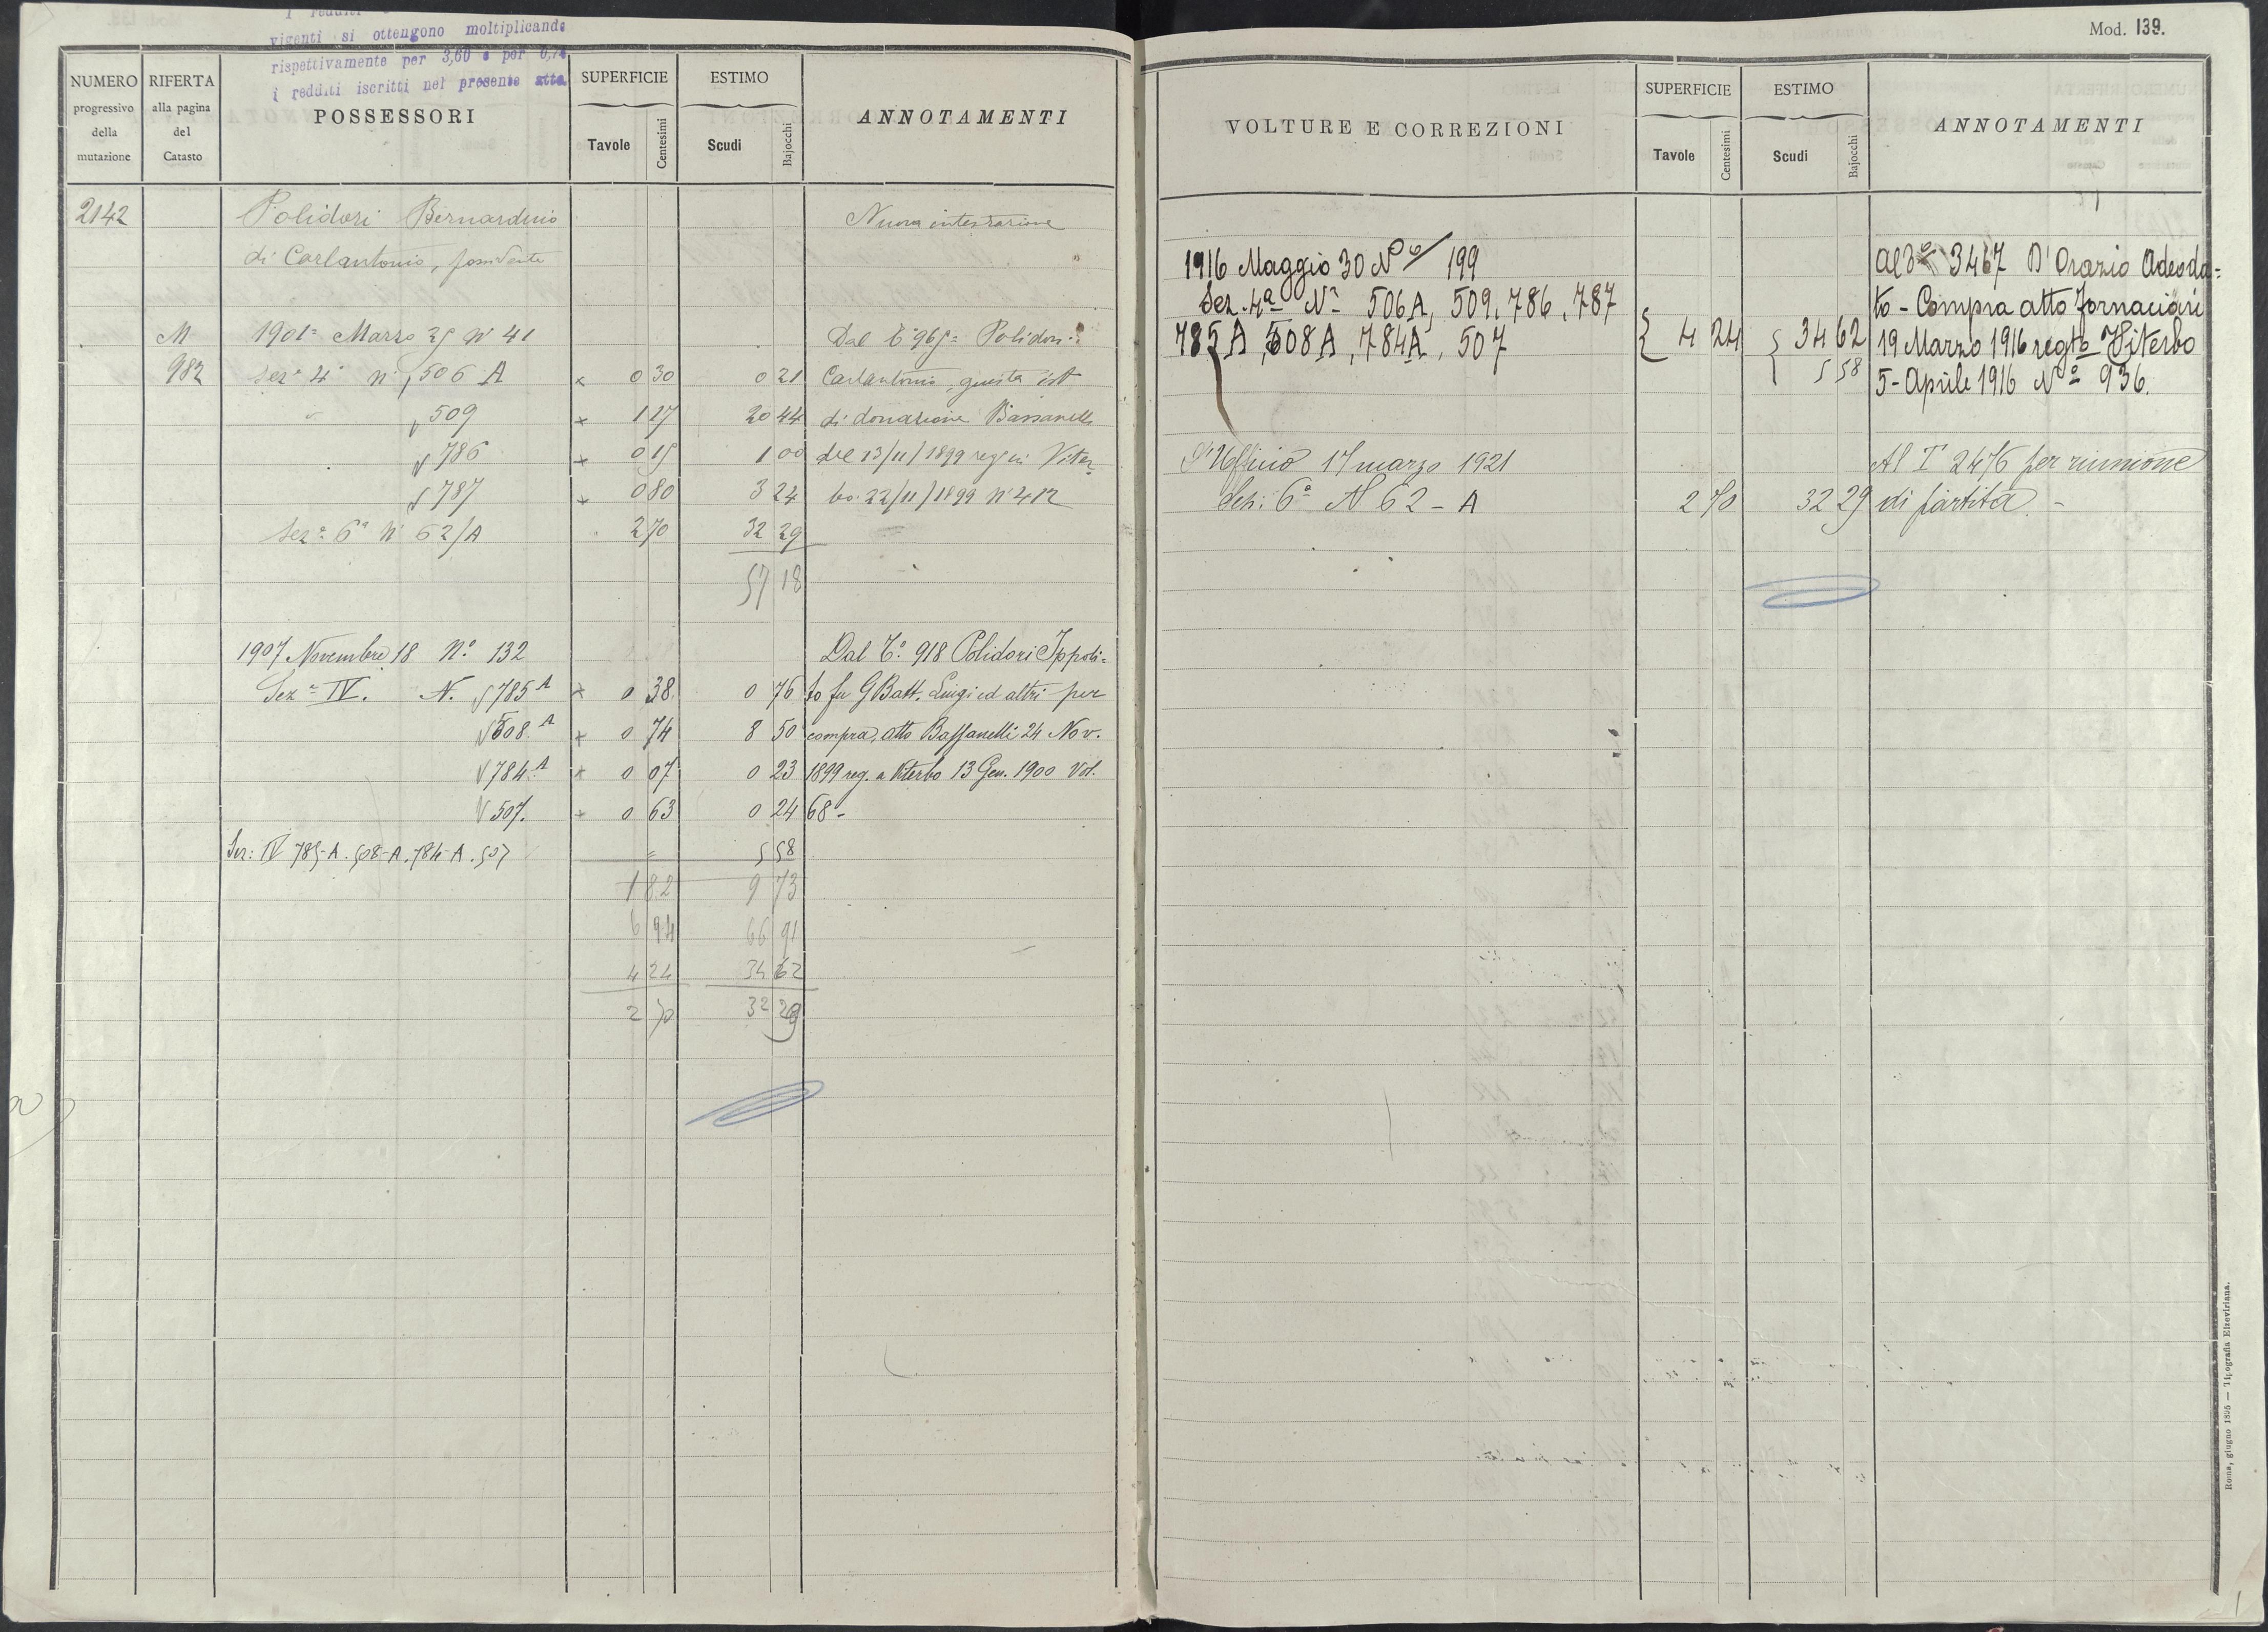 vigenti si ottengono moltiplicando
rispettivamente per 3,60 e per 0,74
i redditi iscritti nel presente atto.
NUMERO
progressivo
della
mutazione
RIFERTA
alla pagina
del
Catasto
POSSESSORI
SUPERFICIE
Tavole Centesimi
ESTIMO
Scudi Bajocchi
ANNOTAMENTI
2142 Polidori Bernardino Nuova intestazione
di Carlantonio, possidente
M 1901= Marzo 25 N° 41 Dal T° 965= Polidori
982 Sez.e 4a N° 506 A × 0 30 0 21 Carlantonio, giusta ist
509 × 1 27 20 44 di donazione Bassanelli
786 × 0 15 1 00 del 13/11/1899 reg in Viter
787 × 0 80 3 24 bo 22/11/1899 N° 412
Sez.e 6a N° 62/A 2 70 32 29
57 18
1907 Novembre 18 N.° 132 Dal T.° 918 Polidori Ippoli=
Sez.e IV. N. 785 A × 0 38 0 76 to fu G Batt. Luigi ed altri per
508 A × 0 74 8 50 compra, atto Bassanelli 24 Nov.
784 A × 0 07 0 23 1899 reg. a Viterbo 13 Gen. 1900 Vol.
507. × 0 63 0 24 68 -
Sez: IV 785-A. 508-A. 784-A. 507 = 5 58
1 82 9 73
6 94 66 91
4 24 34 62
2 70 32 29
Mod. 139.
VOLTURE E CORREZIONI
SUPERFICIE
Tavole Centesimi
ESTIMO
Scudi Bajocchi
ANNOTAMENTI
1916 Maggio 30 N° 199 3467 D'Orazio Adeoda=
Sez. 4a N° 506A, 509, 786, 787 to - Compra atto Fornaciari
785 A, 508 A, 784 A, 507 4 24 34 62 19 Marzo 1916 regto Viterbo
5 58 5 - Aprile 1916 N° 936.
D'Ufficio 17 marzo 1921 Al T° 2476 per riunione
Sez: 6a N 62 - A 2 70 32 29 di partita. -
Roma, giugno 1895 — Tipografia Elzeviriana.